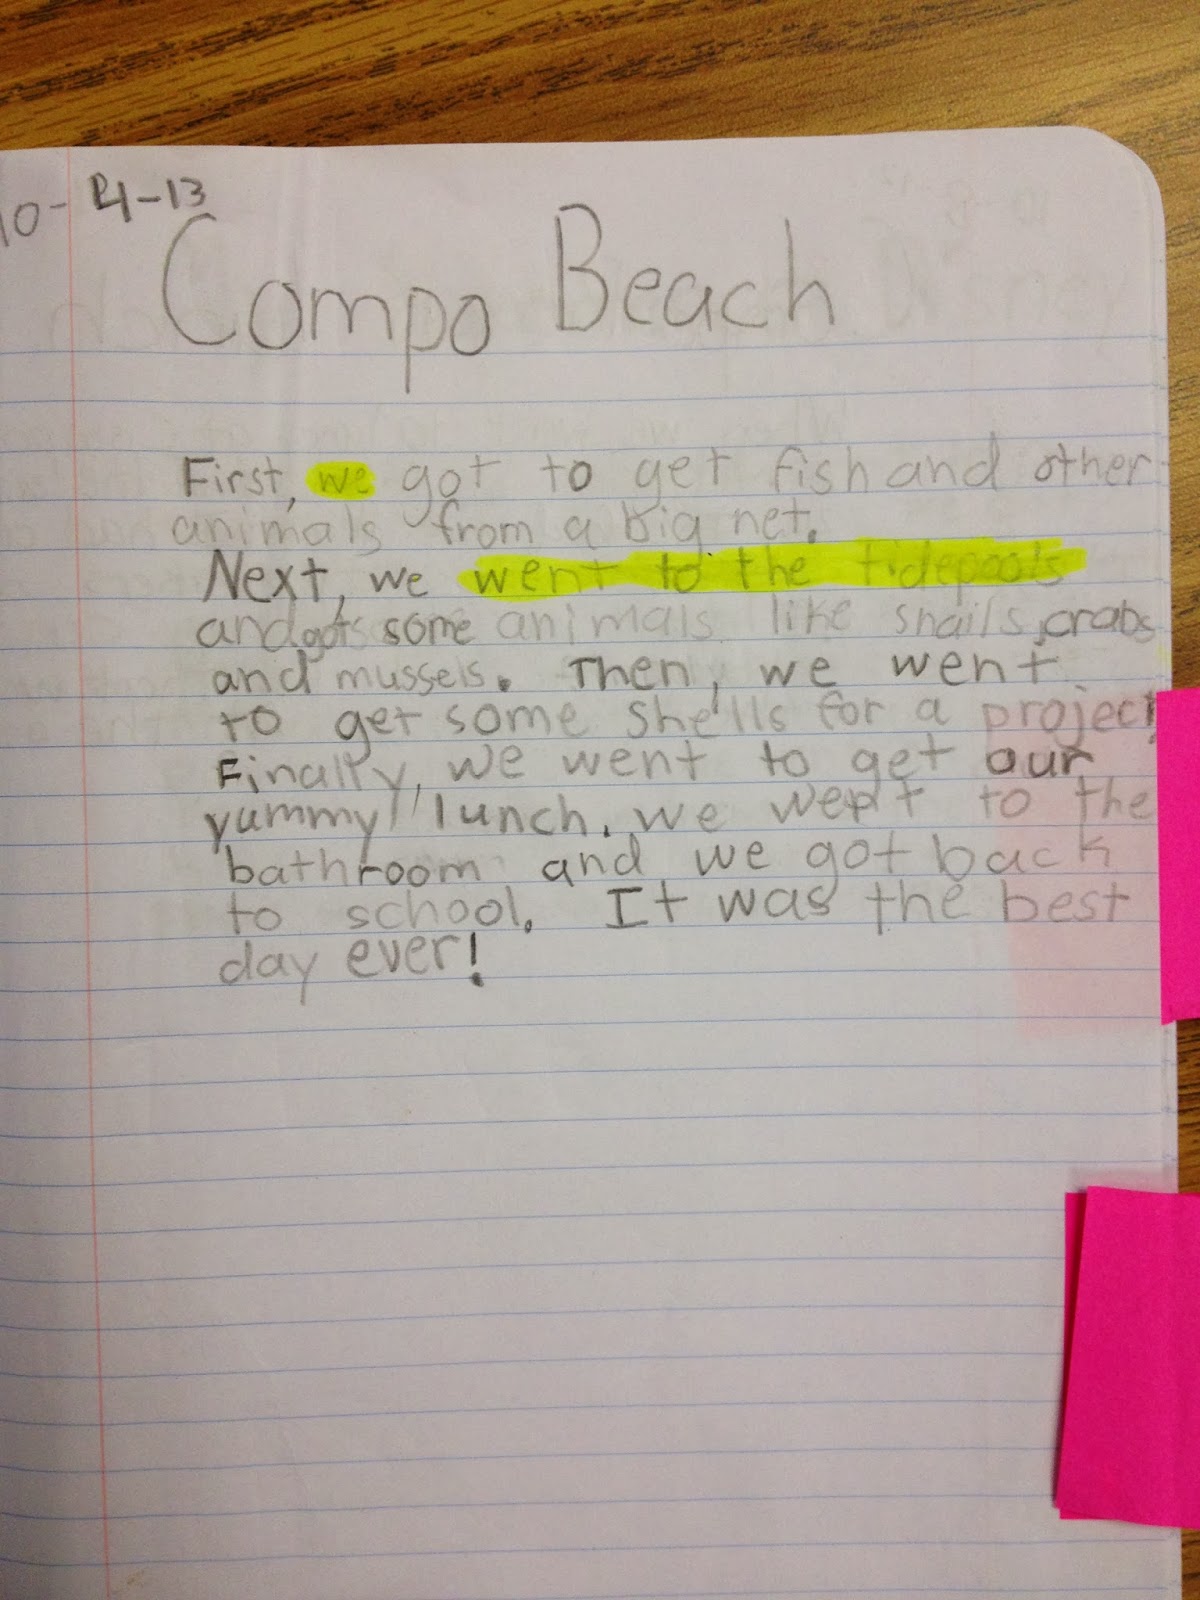 10- 4-13
Compo Beach
First, we got to get fish and other
animals from a big net.
Next, we went to the tidepools
and got some animals like snails, crabs
and mussels. Then, we went
to get some shells for a project.
Finally, we went to get our
yummy lunch. We went to the
bathroom and we got back
to school. It was the best
day ever!